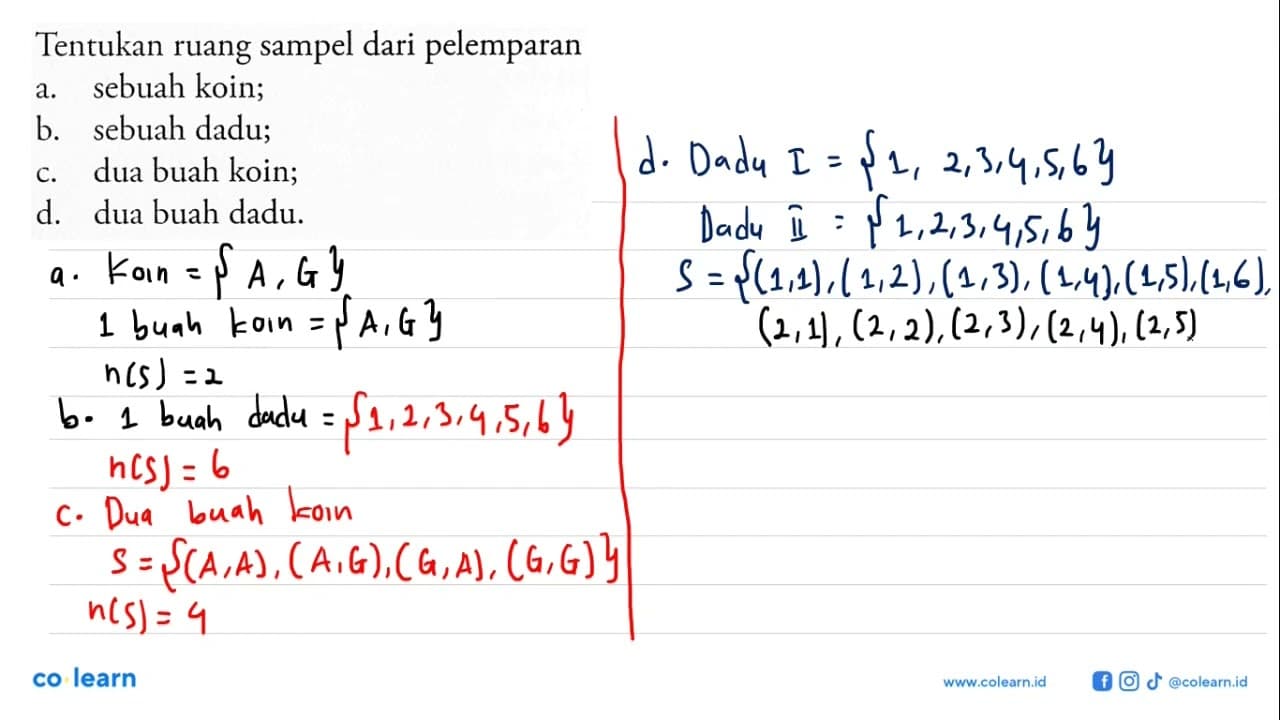 Tentukan ruang sampel dari pelemparan
a. sebuah koin;
b. sebuah dadu;
c. dua buah koin;
d. dua buah dadu.
a. Koin = {A, G}
1 buah koin = {A, G}
n(S) = 2
b. 1 buah dadu = {1, 2, 3, 4, 5, 6}
n(S) = 6
c. Dua buah koin
S = {(A,A), (A,G), (G,A), (G,G)}
n(S) = 4
d. Dadu I = {1, 2, 3, 4, 5, 6}
Dadu II = {1, 2, 3, 4, 5, 6}
S = {(1,1), (1,2), (1,3), (1,4), (1,5), (1,6),
(2,1), (2,2), (2,3), (2,4), (2,5)
co learn
www.colearn.id
@colearn.id